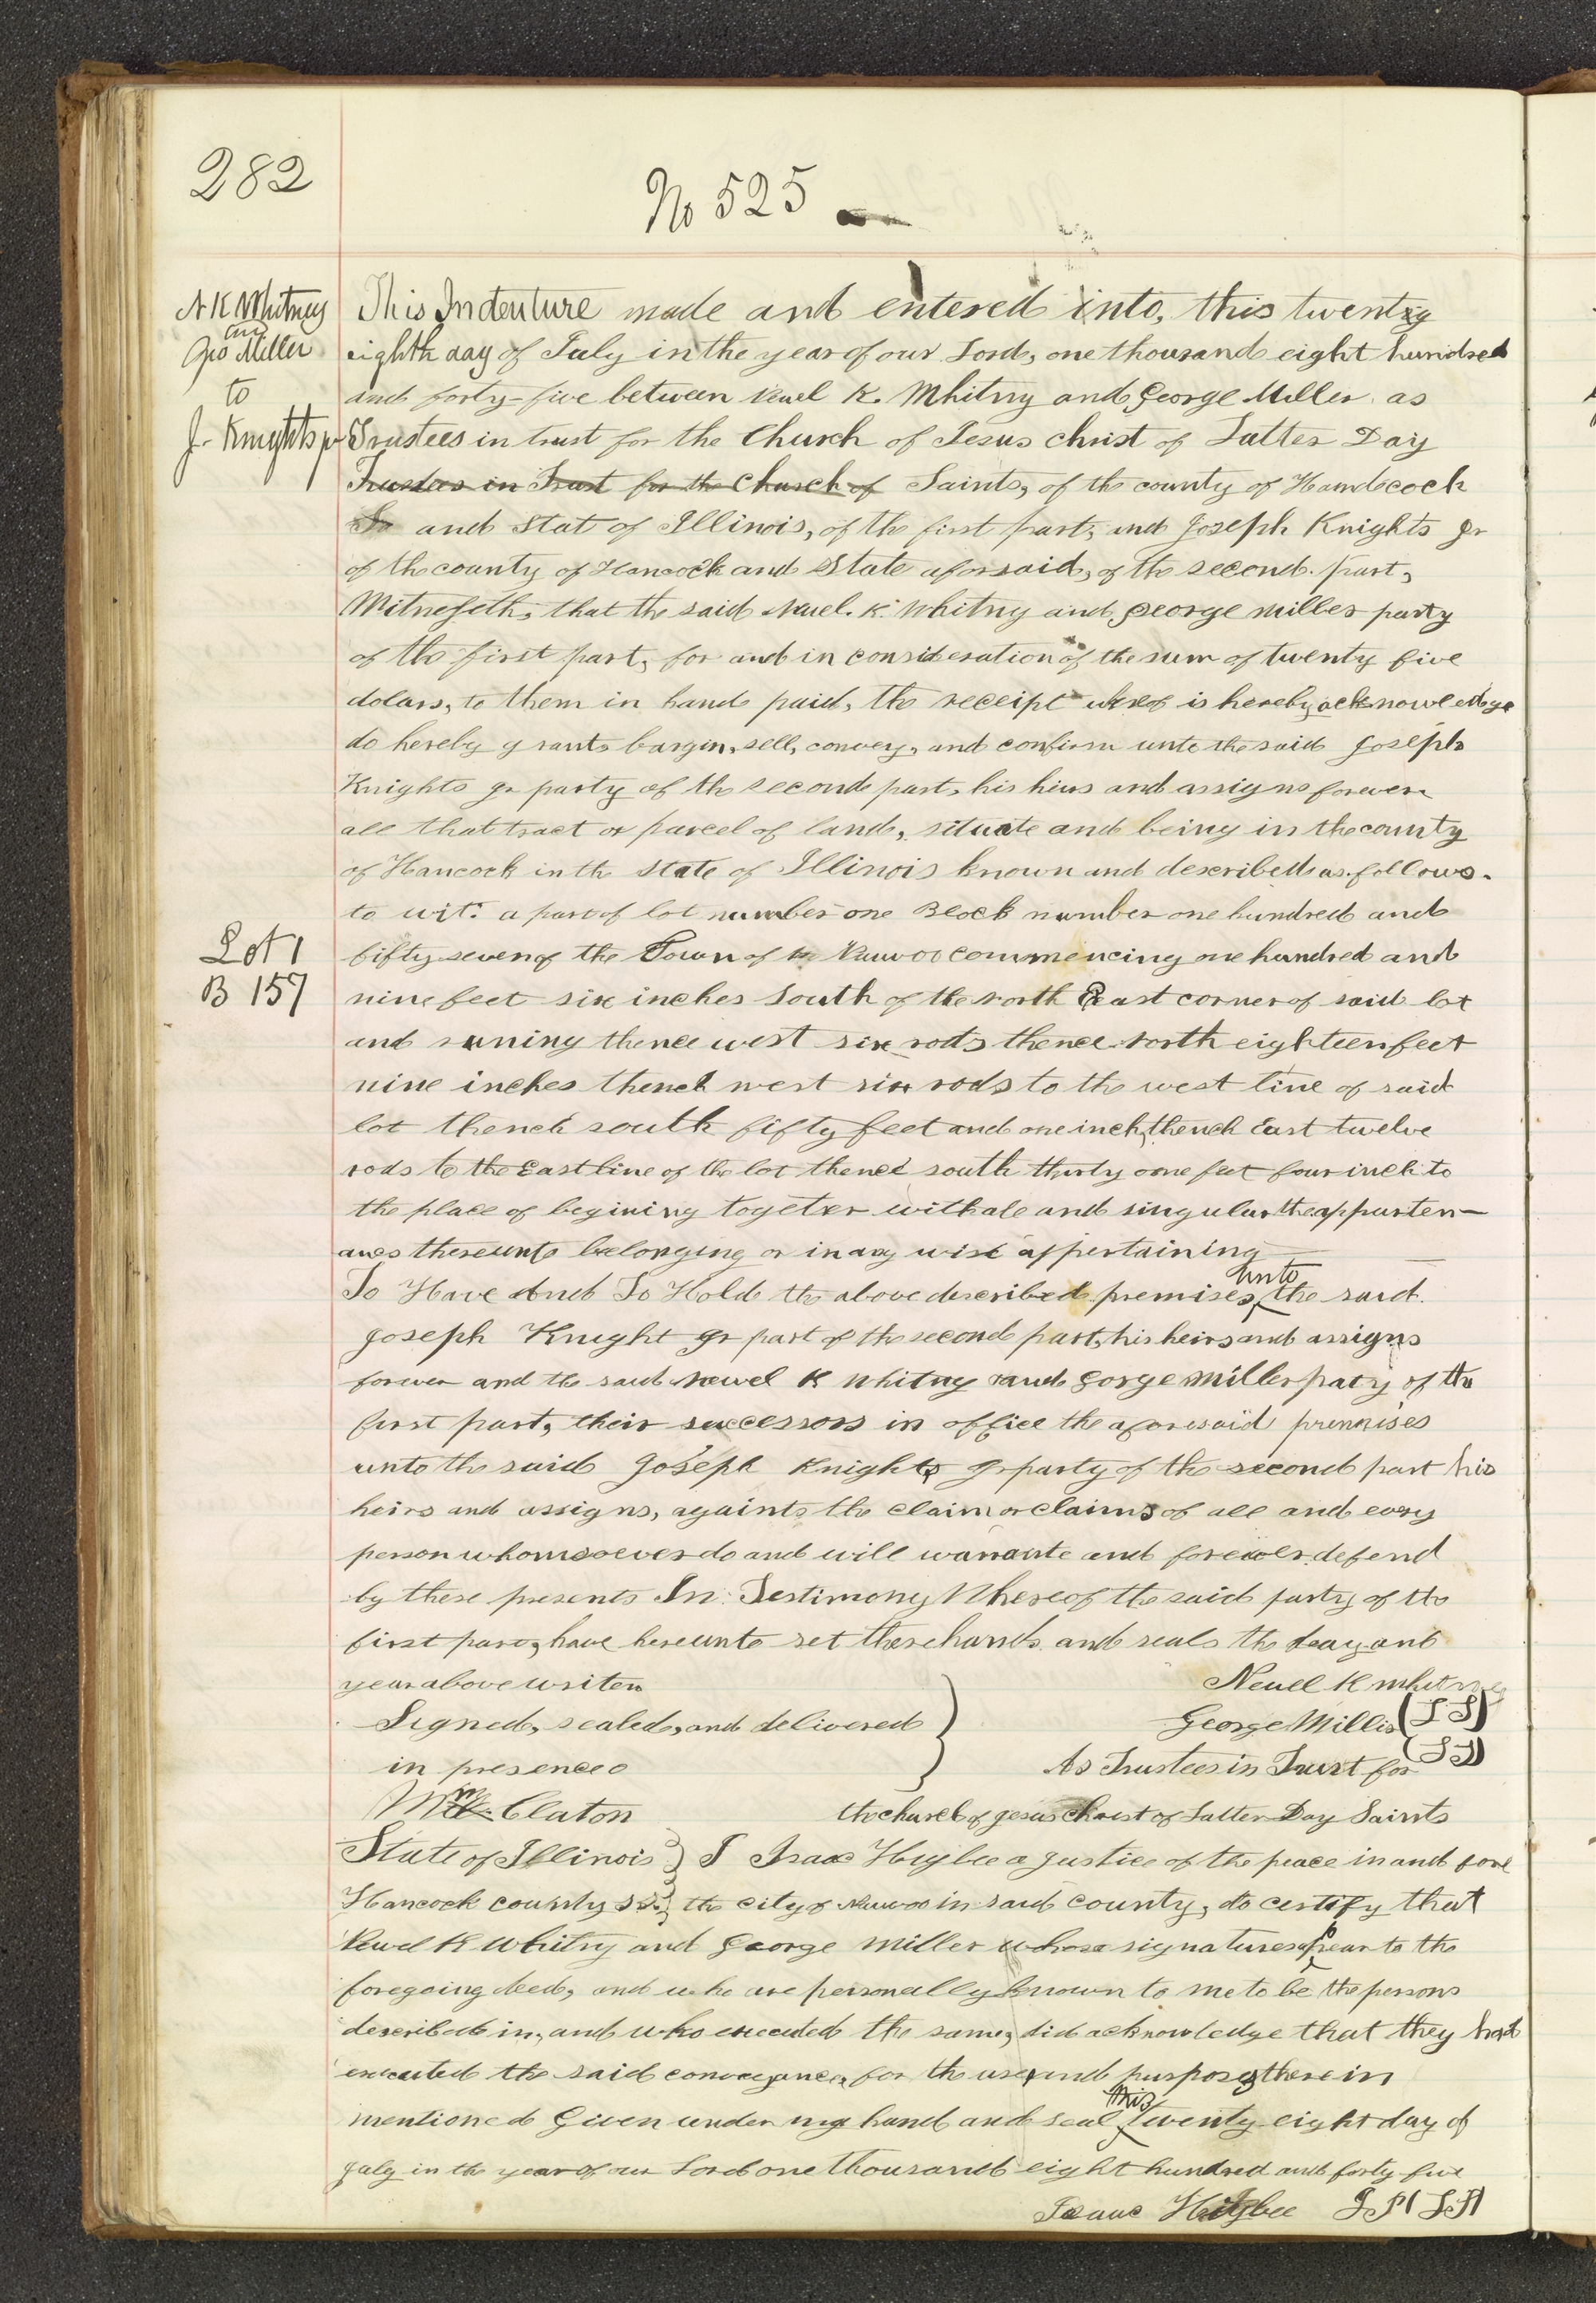 282
No 525
N K Whitney
and
Geo Miller
to
J. Knights jr
Lot 1
B 157
This Indenture made and entered into, this twenty
eighth day of July in the year of our Lord, one thousand eight hundred
and forty-five between Newel K. Whitny and George Miller as
Trustees in trust for the Church of Jesus christ of Latter Day
Trustees in Trust for the Church of Saints, of the county of Handcock
and Stat of Illinois, of the first part, and Joseph Knights Jr
of the county of Hancock and State aforsaid, of the second part,
Witnesseth, that the said Nuel. K. Whitny and George Miller party
of the first part, for and in consideration of the sum of twenty five
dolars, to them in hand paid, the receipt wherof is hereby acknowledge
do hereby grants bargin, sell, convey, and confirm unto the said Joseph
Knights Jr party of the second part, his hiers and assigns forever
all that tract or parcel of land, situate and being in the county
of Hancock in the State of Illinois known and described as follows.
to wit: a part of lot number one Block number one hundred and
fifty seven of the Town of Nauvoo commencing one hundred and
nine feet six inches South of the north East corner of said lot
and runing thence west six rods thence north eighteen feet
nine inches thench west six rods to the west line of said
lot thench south fifty feet and one inch, thench East twelve
rods to the East line of the lot thence south thirty one feet four inch to
the place of begining together with ale and singular the appurten-
ances thereunto belonging or in any wise appertaining
To Have And To Hold the above described premises, unto the said
Joseph Knight Jr part of the second part, his heirs and assigns
forever and the said Newel K Whitny and Gorge Miller paty of the
first part, their successors in office the aforesaid premises
unto the said Joseph Knights Jr party of the second part his
heirs and assigns, againts the claim or claims of all and every
person whomsoever do and will warrante and forever defend
by these presents In Testimony Whereof the said party of the
first part, have hereunto set there hands and seals the day and
year above writen
Newel K Whitney
Signed, sealed, and delivered
George Miller (L S)
in presence
(L S)
As Trustees in Trust for
Wm Claton
the church of jesus christ of Latter Day Saints
State of Illinois } I Isaac Higbee a Justice of the peace in and fore
Hancock county ss. } the city of Nauvoo in said county, do certify that
Newel K Whitny and George Miller whose signatures appear to the
foregoing deed, and who are personally known to me to be the persons
described in, and who executed the same, did acknowledge that they had
executed the said conveyance, for the use and purposes therein
mentioned Given under my hand and seal this twenty eight day of
July in the year of our Lord one thousand eight hundred and forty five
Isaac Higbee J. P. (L.S)